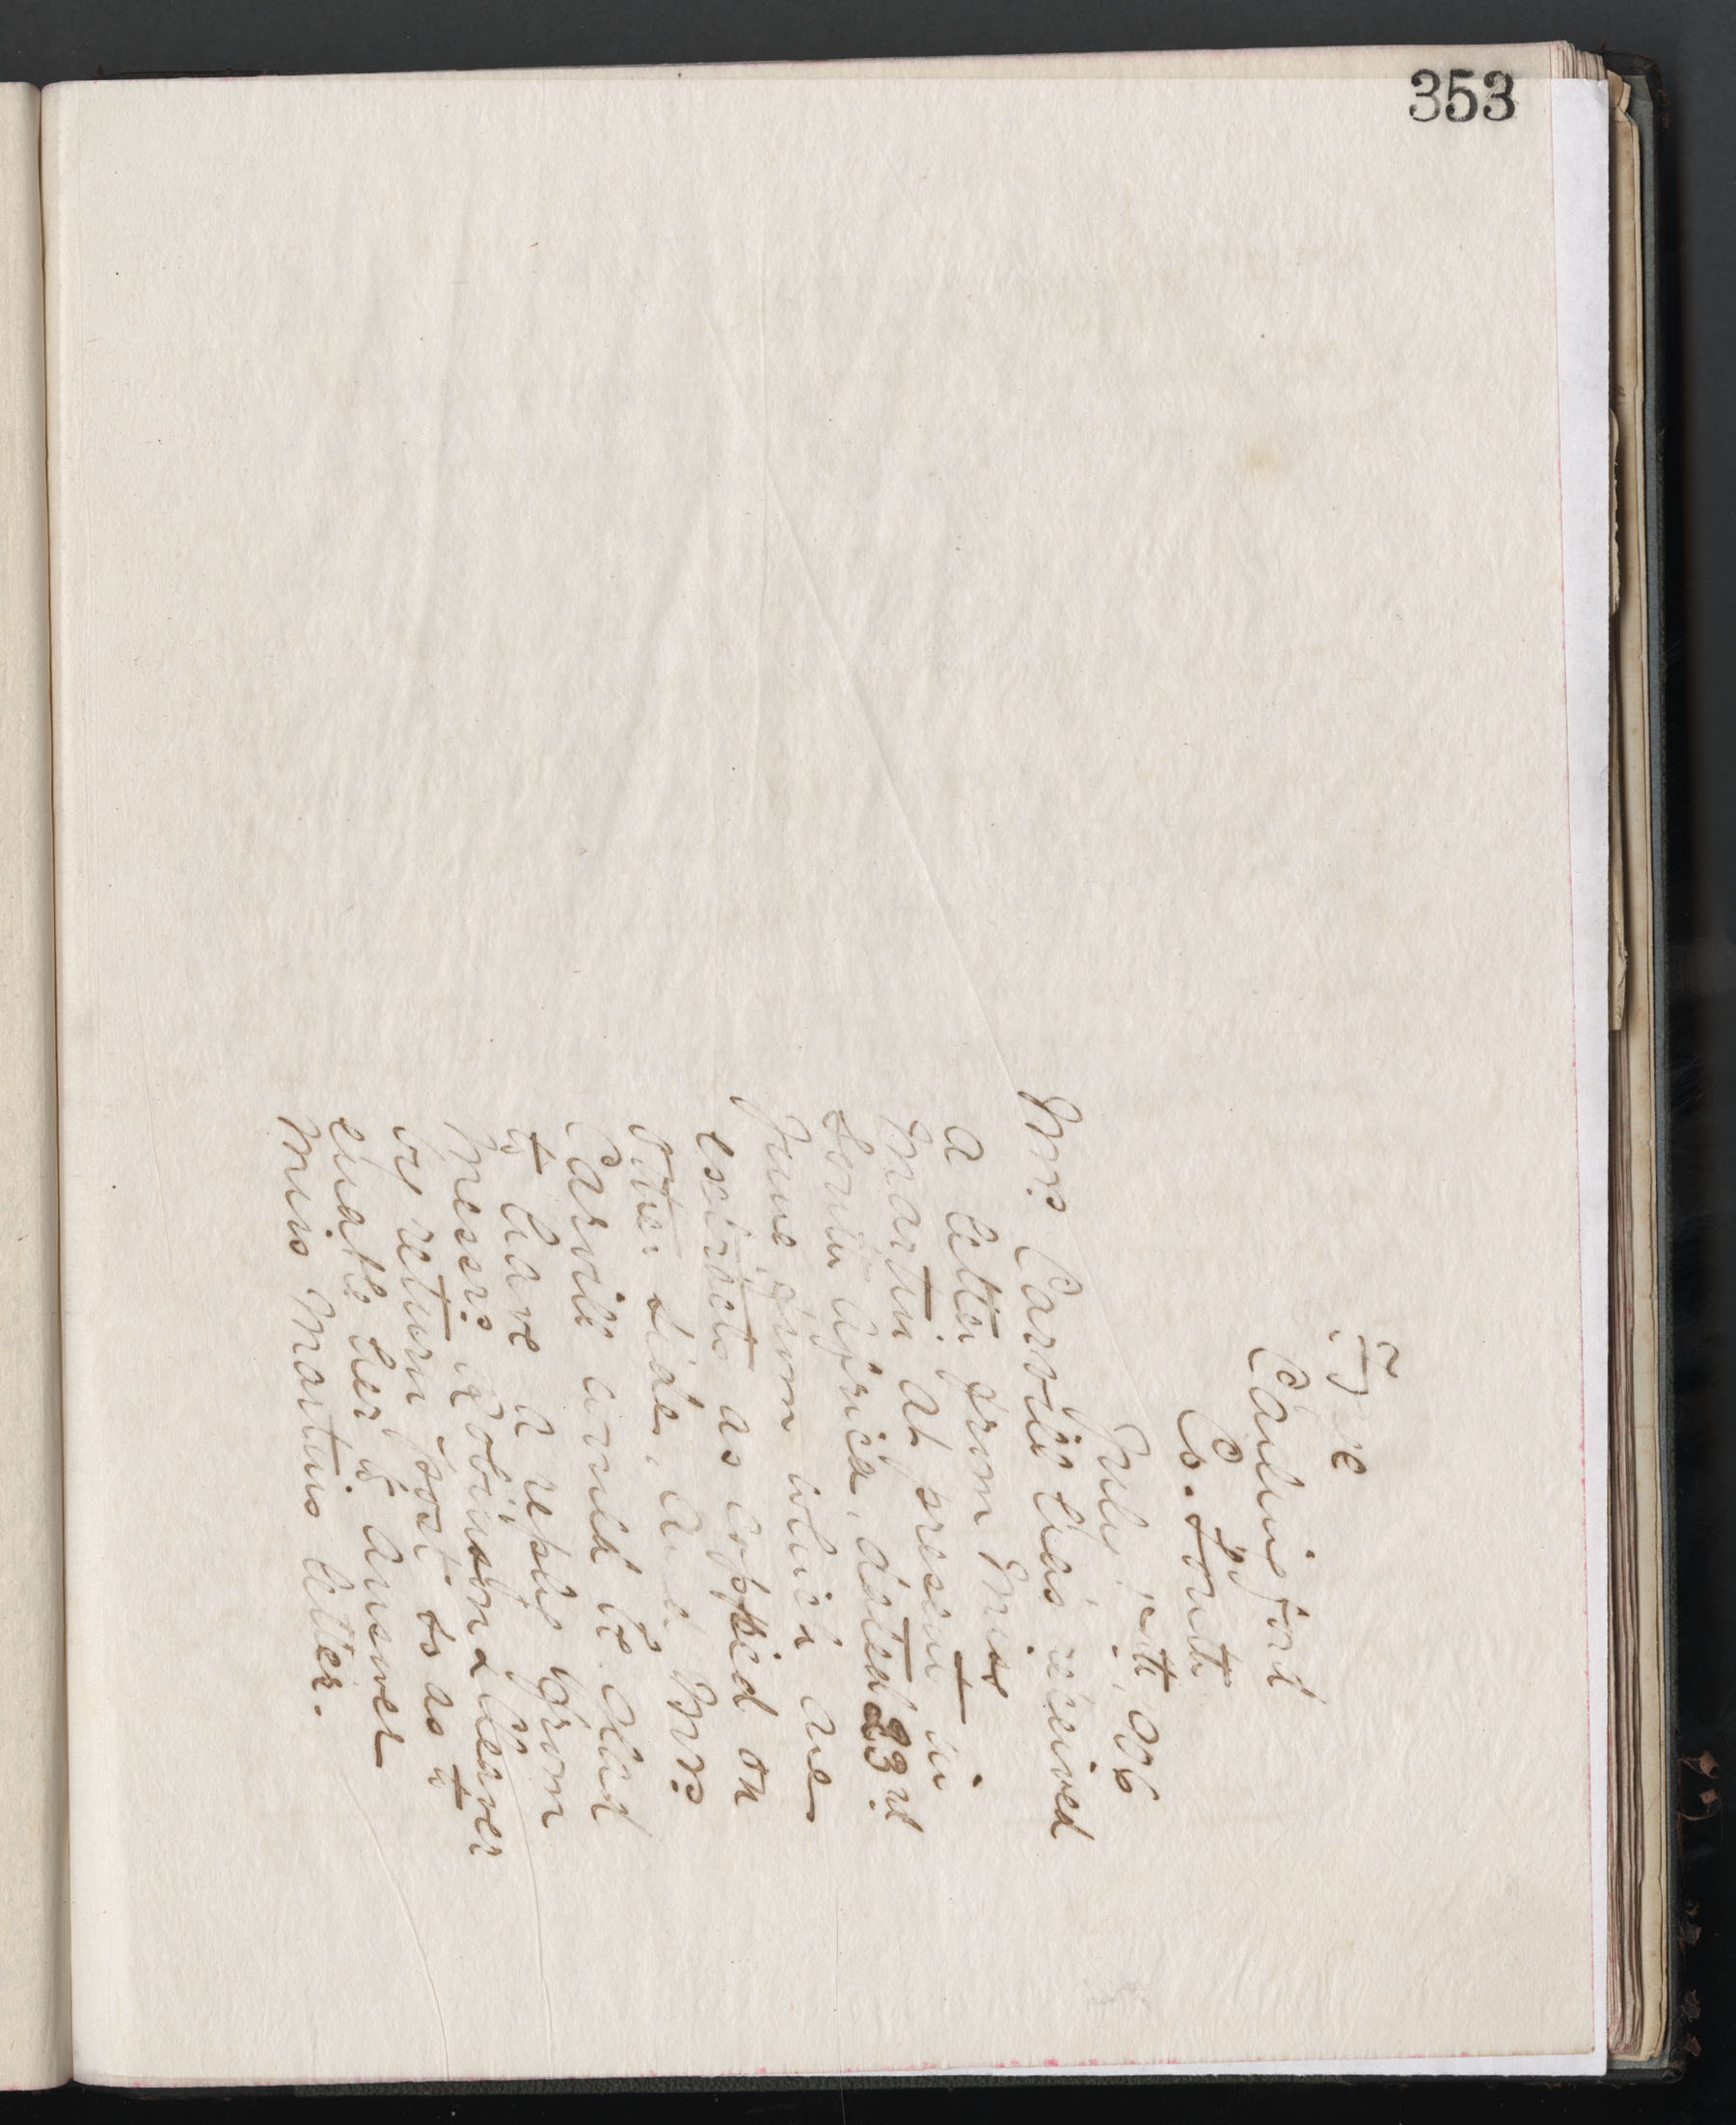 353
Carlingford
Co. Louth
July 1906
Mrs. Carvill has received
a letter from Miss
Martin at present in
South Africa, dated 23rd
June from which are
extracts as coppied on
other side, and Mrs.
Carvill would be glad
to have a reply from
Messrs. Robinson & Cleaver
by return post so as to
enable her to answer
Miss Martins letter.